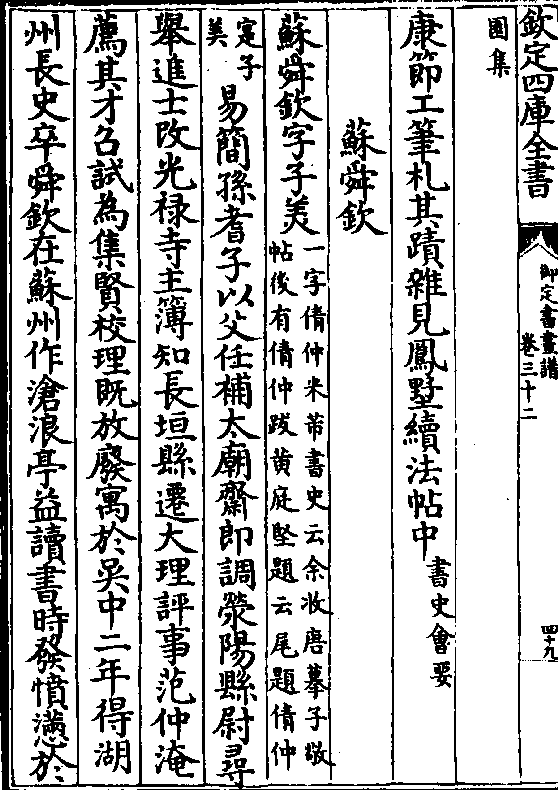 欽定四庫全書
御定書畫譜
卷三十二
四十九
圖集
康節工筆札其蹟雜見鳳墅續法帖中書史會要
蘇舜欽
蘇舜欽字子美一字倩仲米芾書史云余收唐摹子敬
帖後有倩仲跋黄庭堅題云尾題倩仲
寔子
美
易簡孫耆子以父任補太廟齋郎調滎陽縣尉尋
舉進士改光禄寺主簿知長垣縣遷大理評事范仲淹
薦其才召試為集賢校理既放廢寓於吴中二年得湖
州長史卒舜欽在蘇州作滄浪亭益讀書時發憤懣於